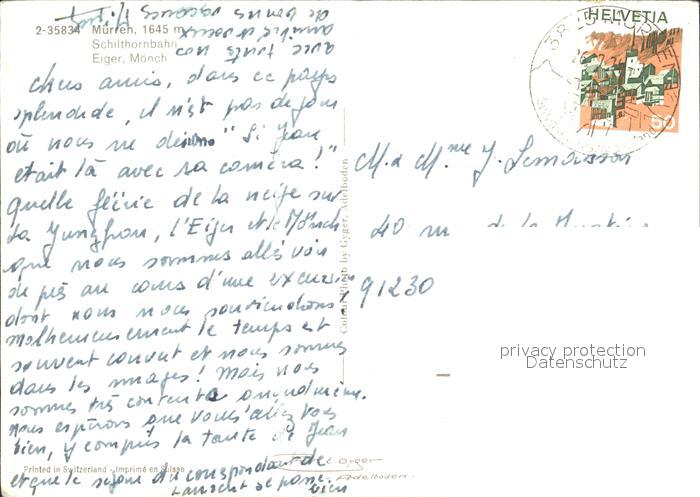 2-35834 Mürren, 1645 m
Schilthornbahn
Eiger, Mönch
HELVETIA
50
Chers amis, dans ce pays
splendide, il n'est pas de jour
où nous ne disions "Si Jean
était là avec sa caméra!"
Quelle féérie de la neige sur
la Jungfrau, l'Eiger et le Mönch
que nous sommes allés voir
de près au cours d'une excursion
dont nous nous souviendrons!
Malheureusement le temps est
souvent couvert et nous sommes
dans les nuages! Mais nous
sommes très contents quand même.
Nous espérons que vous allez tous
bien, y compris la tante de Jean
et que le séjour du correspondant de
Laurent se passe bien
avec toutes nos
amitiés
de bonnes vacances
M. & Mme J. Lemasson
40 rue de la
91230
Colour Photo by Gyger, Adelboden
privacy protection
Datenschutz
Printed in Switzerland - Imprimé en Suisse
E. Gyger
Adelboden